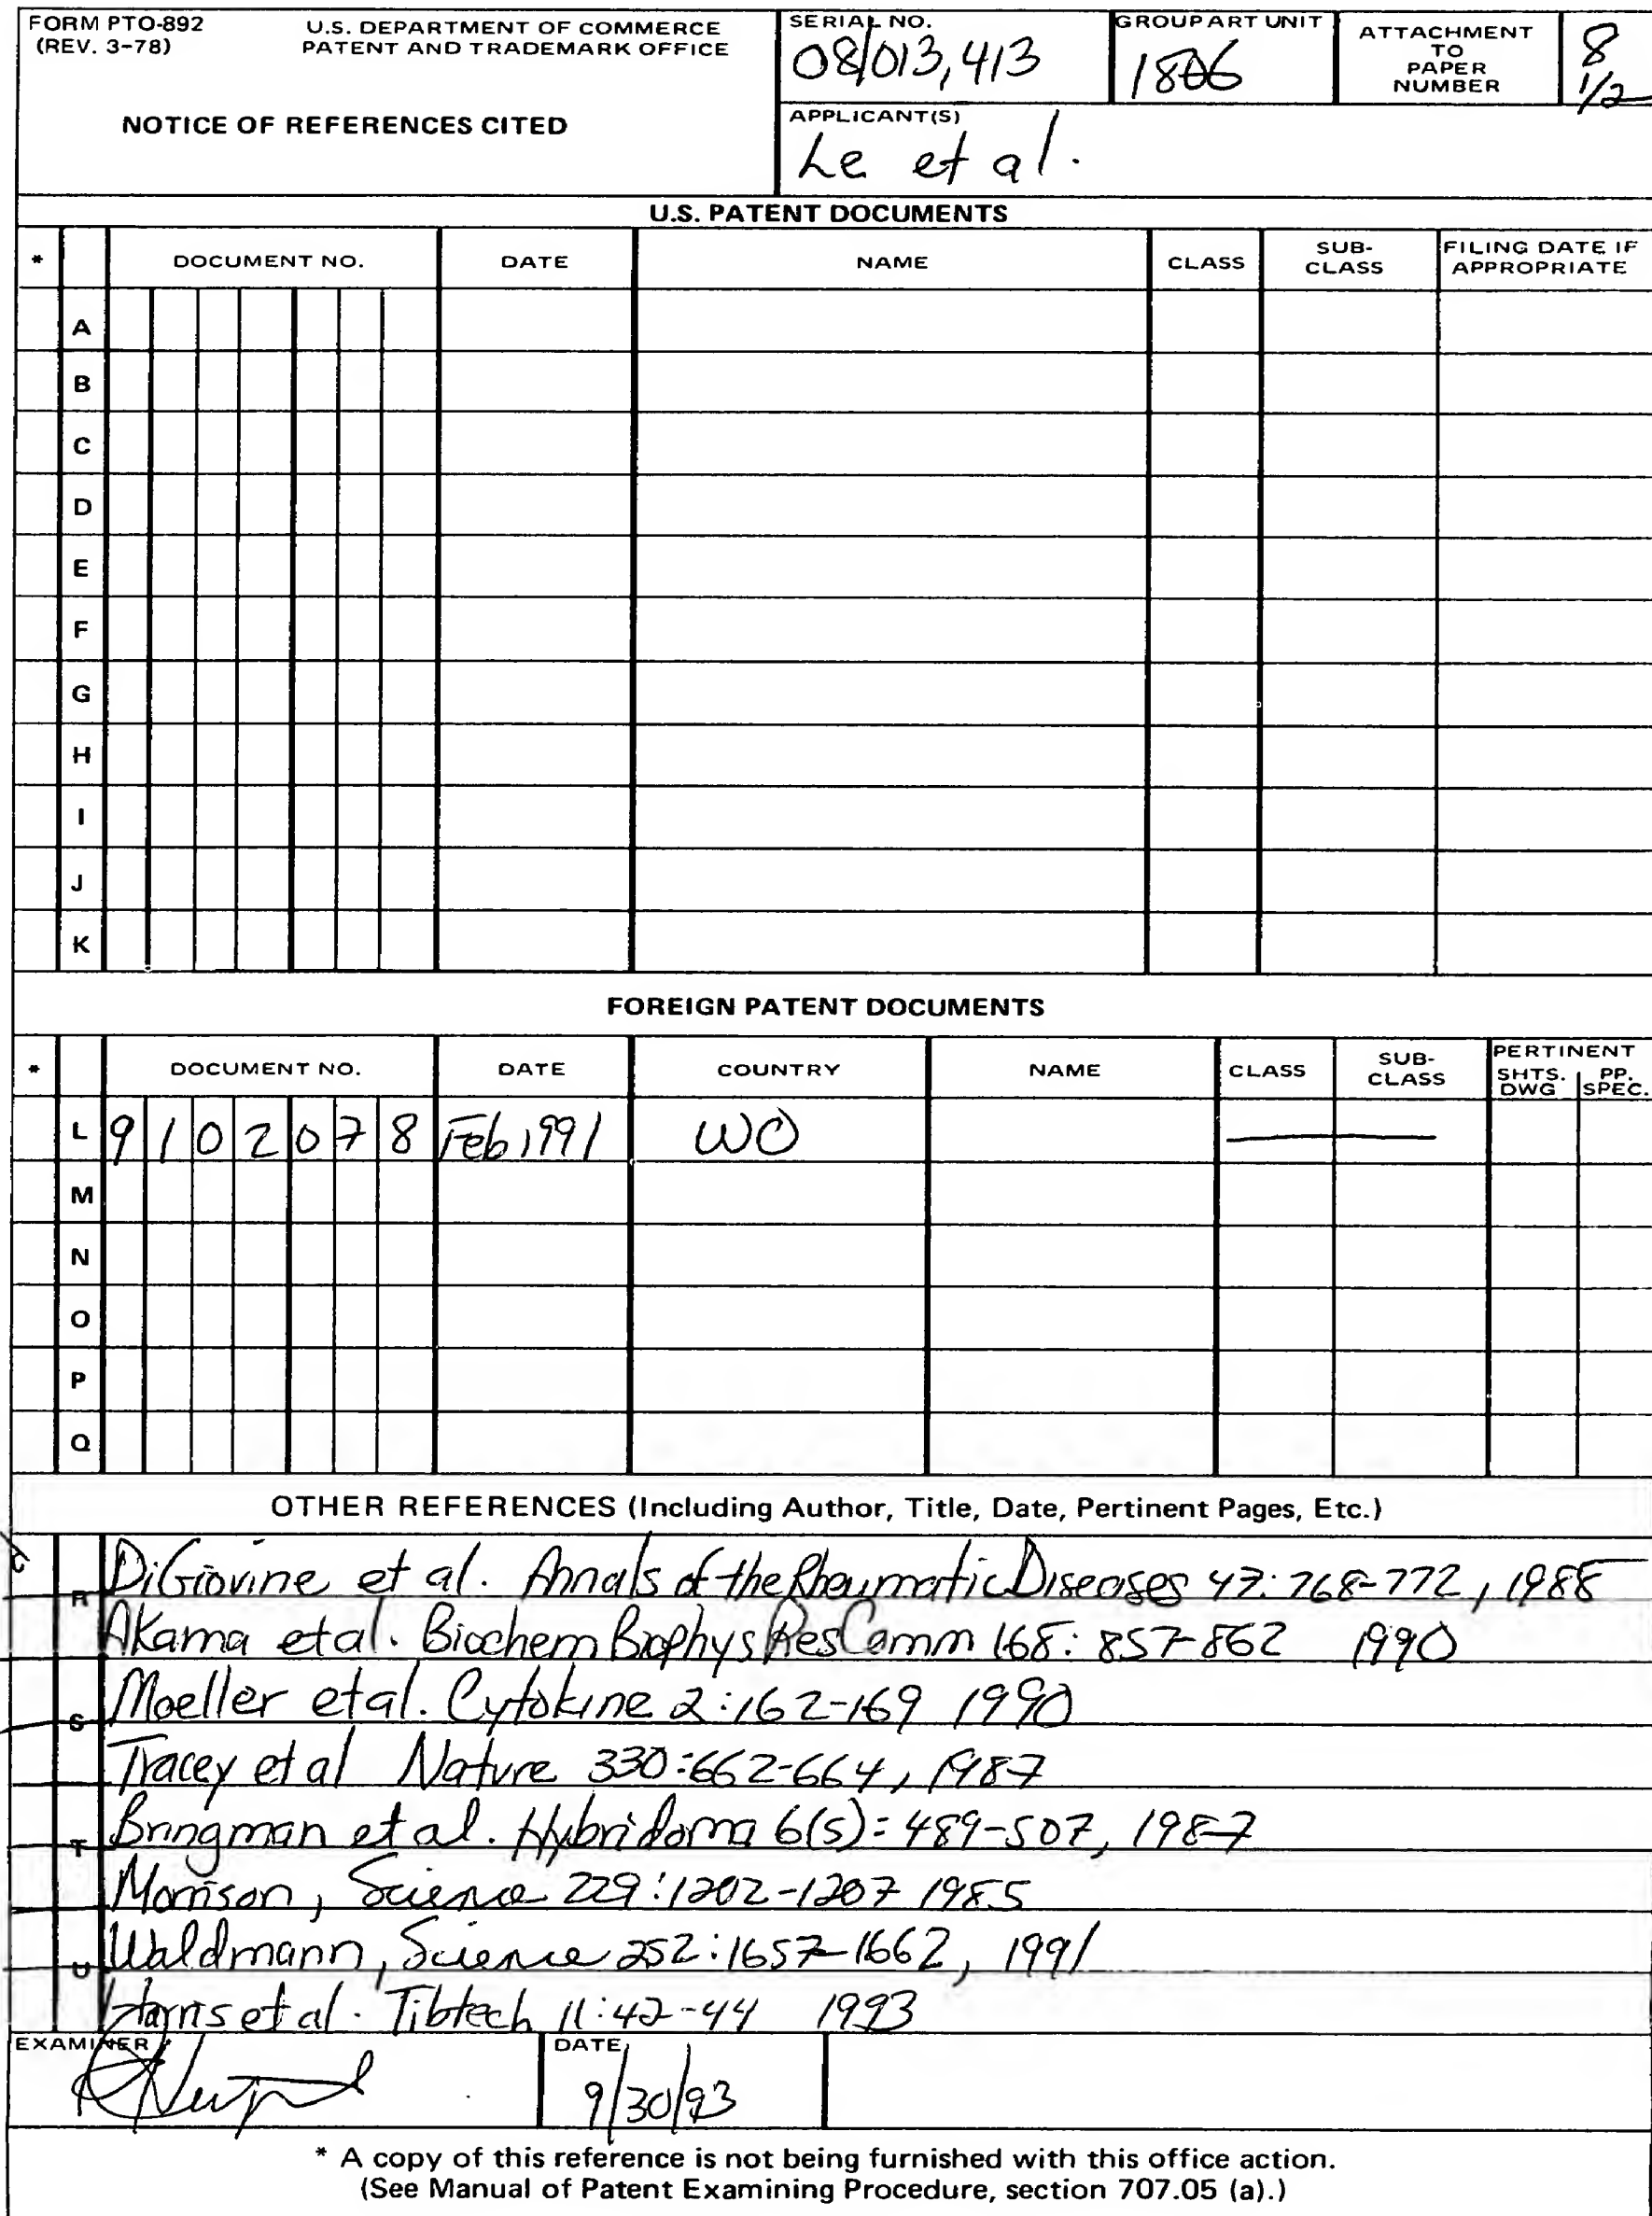 FORM PTO-892
(REV. 3-78)
U.S. DEPARTMENT OF COMMERCE
PATENT AND TRADEMARK OFFICE
SERIAL NO.
08/013,413
GROUP ART UNIT
1806
ATTACHMENT
TO
PAPER
NUMBER
8
1/2
NOTICE OF REFERENCES CITED
APPLICANT(S)
Le et al.
U.S. PATENT DOCUMENTS
* DOCUMENT NO. DATE NAME CLASS SUB-CLASS FILING DATE IF APPROPRIATE
A
B
C
D
E
F
G
H
I
J
K
FOREIGN PATENT DOCUMENTS
* DOCUMENT NO. DATE COUNTRY NAME CLASS SUB-CLASS PERTINENT SHTS. DWG PP. SPEC.
L 9102078 Feb 1991 WO
M
N
O
P
Q
OTHER REFERENCES (Including Author, Title, Date, Pertinent Pages, Etc.)
R DiGiovine et al. Annals of the Rheumatic Diseases 47: 768-772, 1988
Akama et al. Biochem Biophys Res Comm 168: 857-862 1990
S Moeller et al. Cytokine 2:162-169 1990
Tracey et al Nature 330:662-664, 1987
T Bringman et al. Hybridoma 6(5): 489-507, 1987
Morrison, Science 229:1202-1207 1985
U Waldmann, Science 252:1657-1662, 1991
Harris et al. Tibtech 11:42-44 1993
EXAMINER
DATE
9/30/93
* A copy of this reference is not being furnished with this office action.
(See Manual of Patent Examining Procedure, section 707.05 (a).)